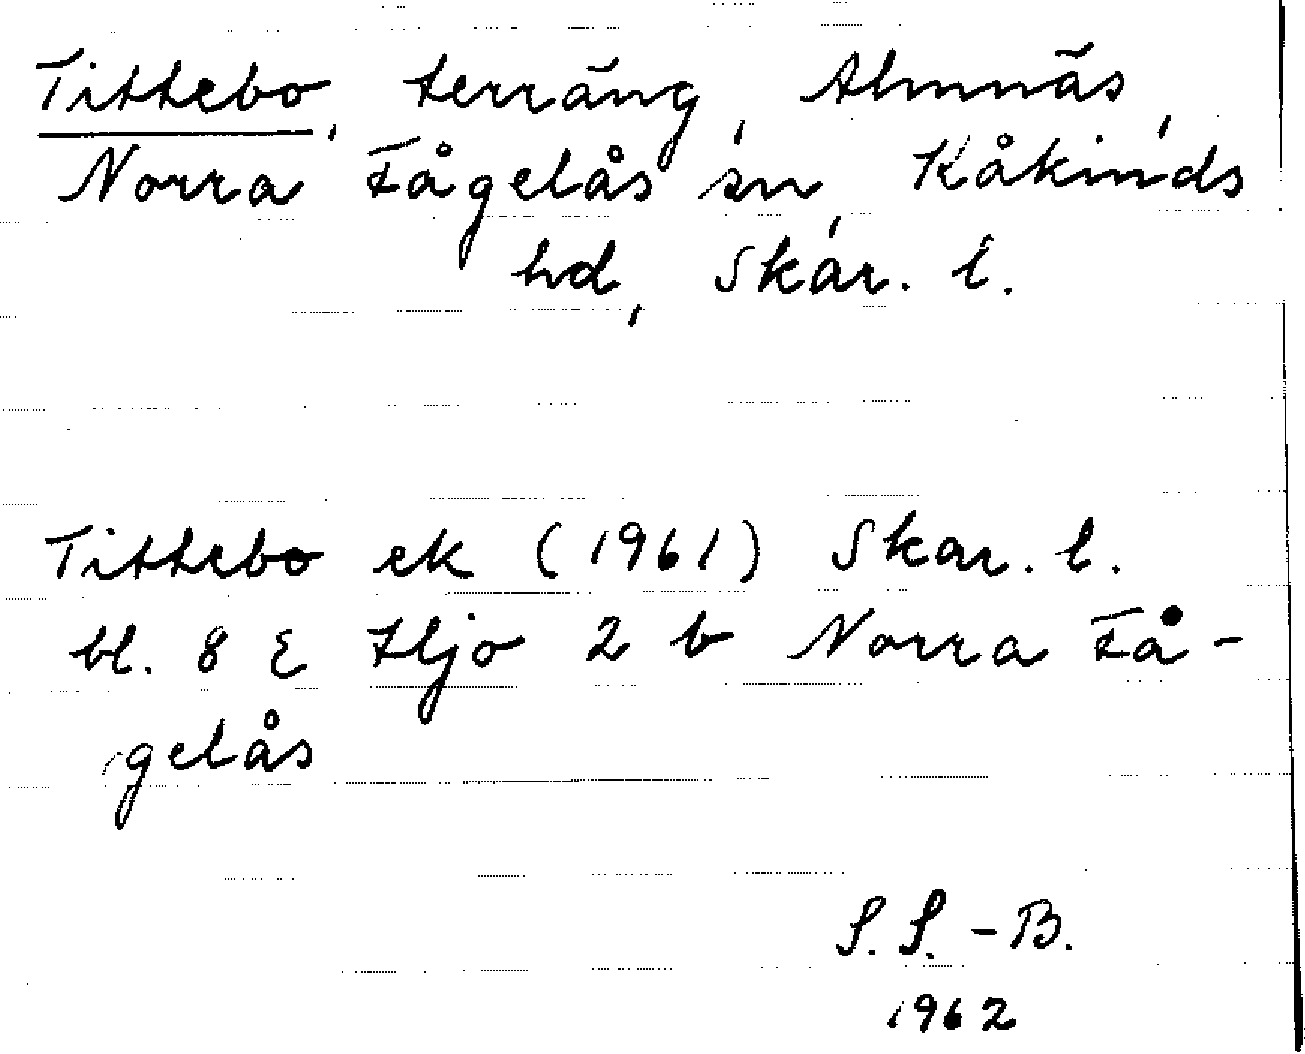 Tittebo, terräng, Almnäs,
Norra Fågelås sn, Kåkinds
hd, Skar. l.
Tittebo ek (1961) Skar. l.
bl. 8 E Hjo 2 b Norra Få-
gelås
S. S. - B.
1962